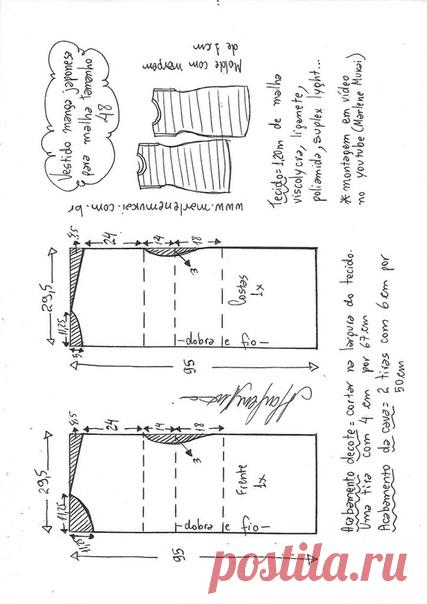 Vestido manga japonesa
para malha tamanho
48
Molde com margem
de 1cm
www.marlenemukai.com.br
Tecido = 1,20m de malha
viscolycra, liganete,
poliamida, suplex lyght...
* montagem em vídeo
no youtube (Marlene Mukai)
29,5
11,25
8,5
24
14
18
3
Costas
1x
fio e dobra
95
29,5
11,25
8,5
24
14
18
3
Frente
1x
fio e dobra
95
Acabamento decote = cortar na largura do tecido.
Uma tira com 4 cm por 67cm
Acabamento da cava = 2 tiras com 6 cm por
50cm
postila.ru